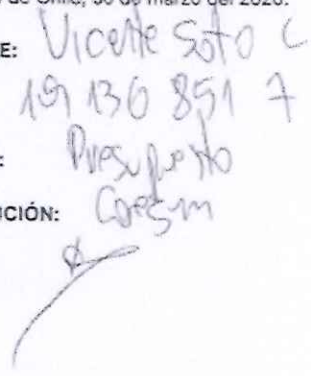 de Chile, 30 de marzo del 2020.
E: Vicente Soto C
19 136 851 7
: Presupuesto
UCIÓN: Coresam